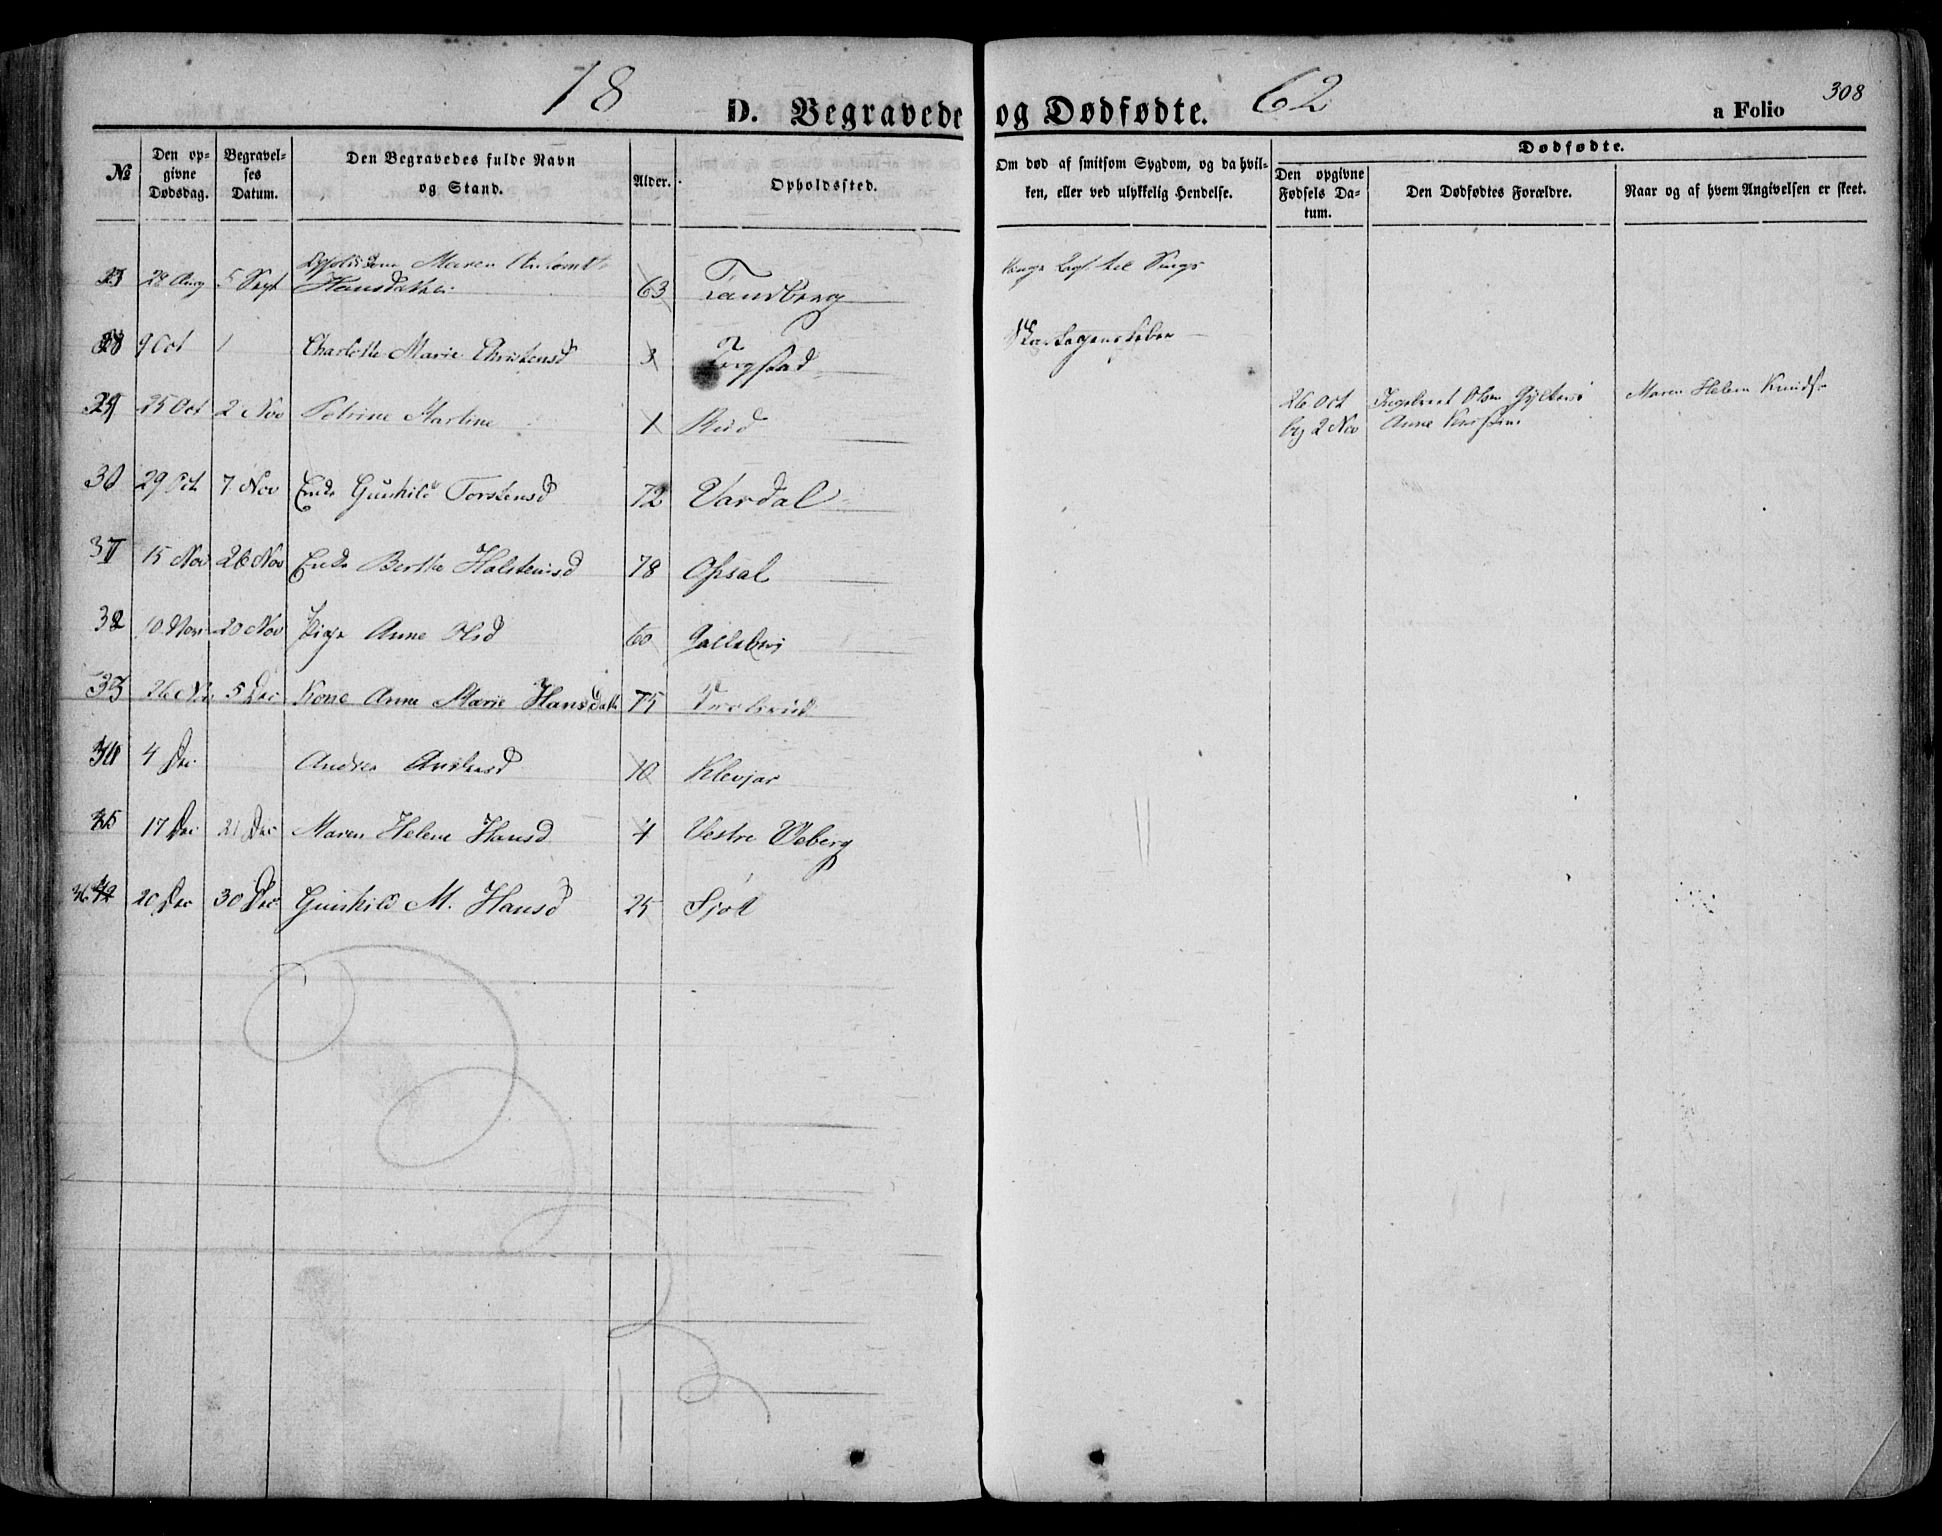 18 62
308
D. Begravede og Dødfødte.
a Folio
№
Den op-
givne
Dødsdag.
Begravel-
ses
Datum.
Den Begravedes fulde Navn
og Stand.
Alder.
Opholdssted.
Om død af smitsom Sygdom, og da hvil-
ken, eller ved ulykkelig Hendelse.
Dødfødte.
Den opgivne
Fødsels Da-
tum.
Den Dødfødtes Forældre.
Naar og af hvem Angivelsen er skeet.
28 Aug 5 Sept Maren
Hansdatter 63 Tandberg
til Sengs
9 Oct Charlotte Marie Christensd 3
29 25 Oct 2 Nov Petrine Martine 1 Rud
26 Oct Ingebret Olsen Maren Helene Knuds
beg 2 Nov Anne
30 29 Oct 7 Nov Enke Gunhild Torstensd 72 Vardal
31 15 Nov 26 Nov Enke Berthe Halsteinsd 78 Opsal
32 10 Nov 20 Nov Pige Anne Olsd 60
33 26 Nov 5 Dec Kone Anne Marie Hansdatt 75
34 4 Dec Andrea 10 Klevjar
35 17 Dec 21 Dec Maren Helene Hansd 4 Vestre Veberg
36 20 Dec 30 Dec Gunhild M. Hansd 25 Sjøl